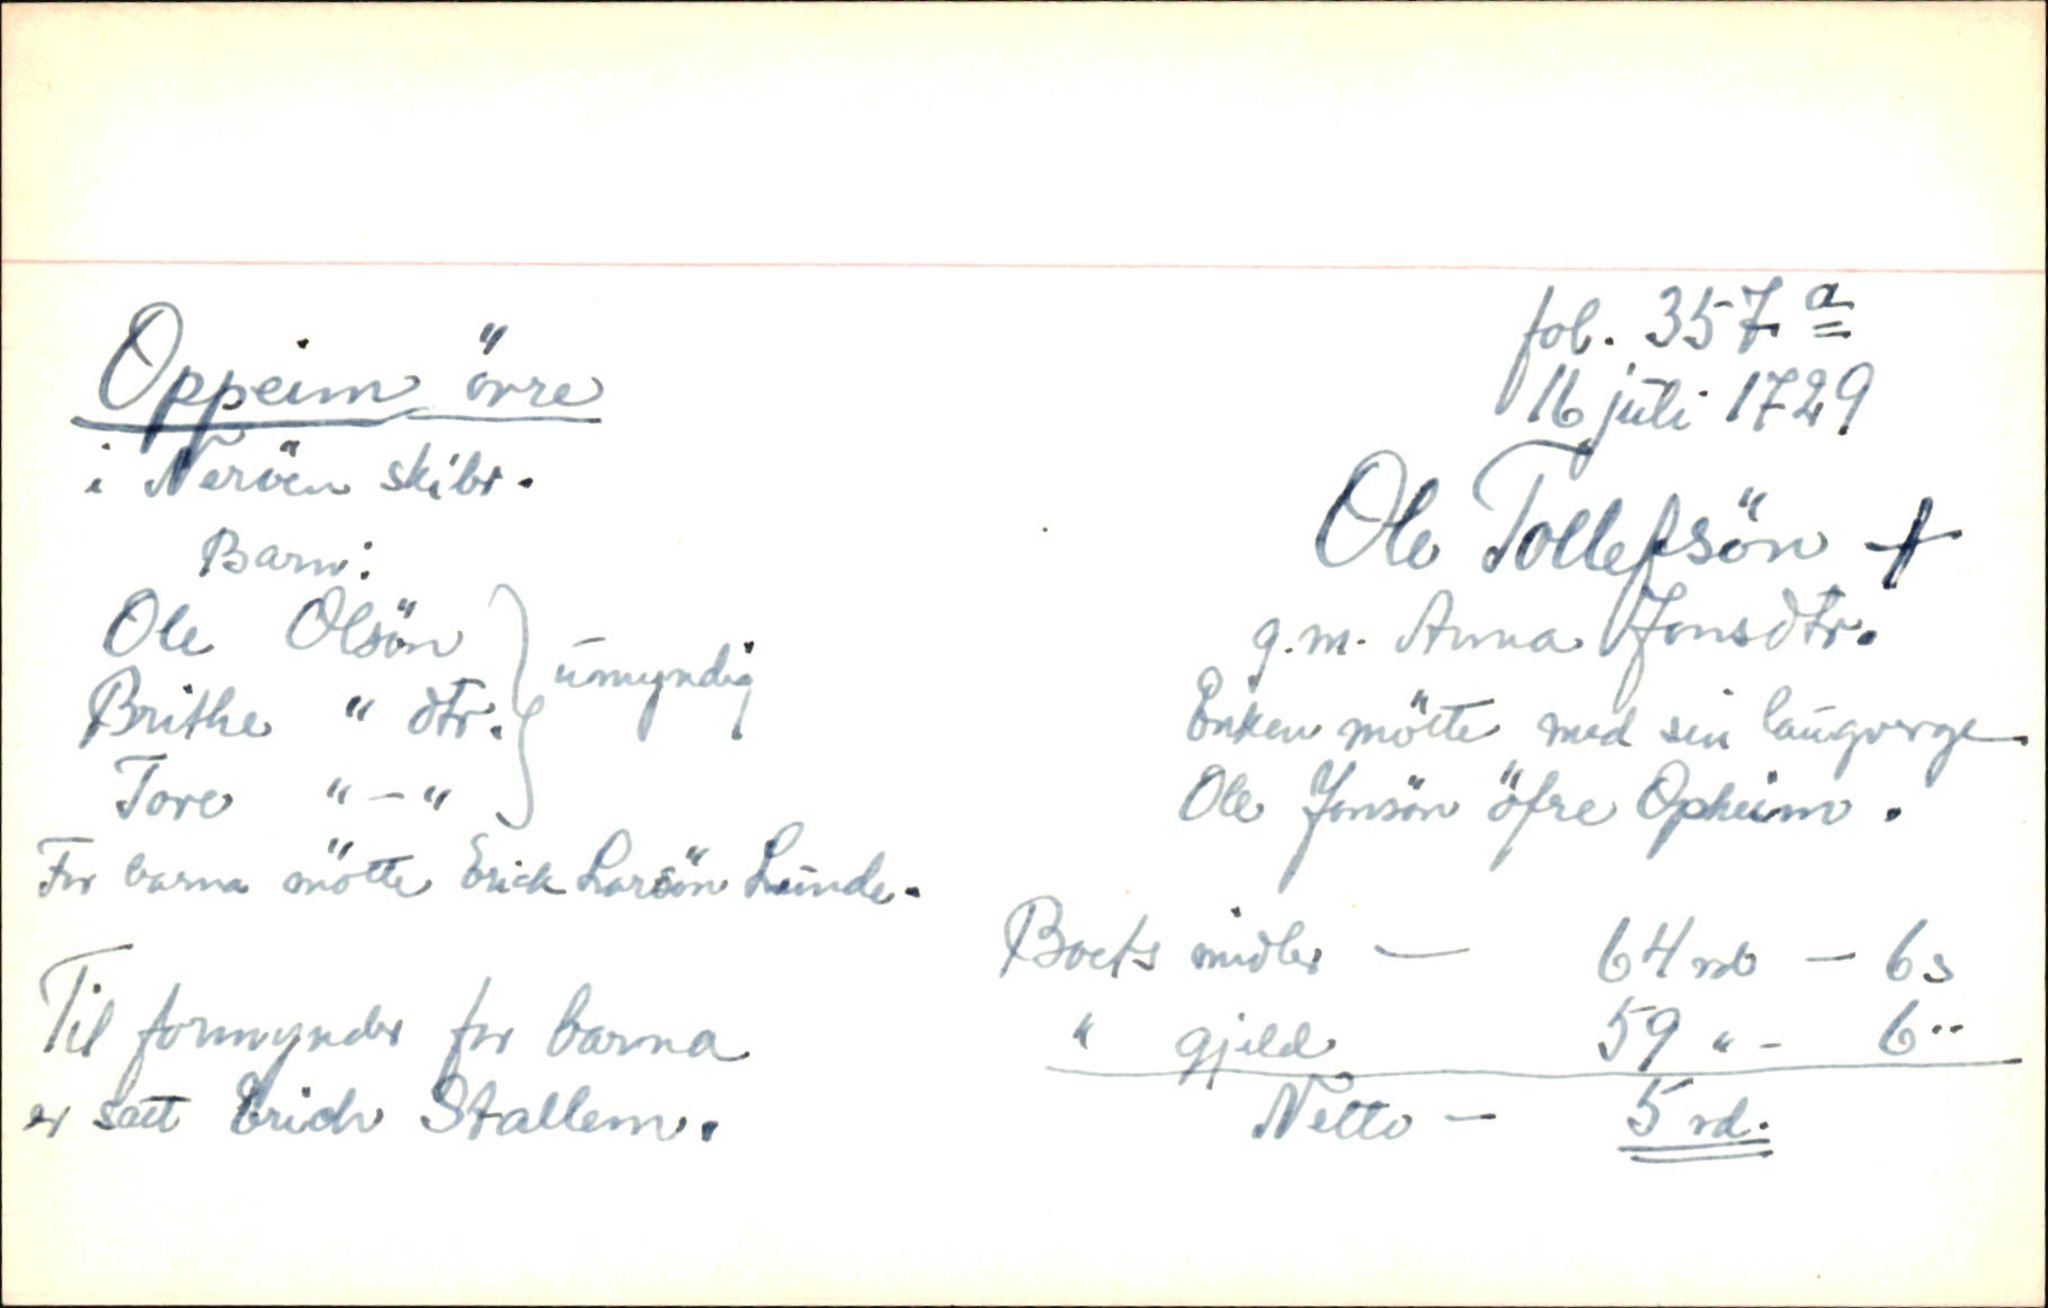 Oppeim övre
i Neröen skibr.
Barn:
Ole Olsön
Brithe " dtr.
Tore "-"
umyndig
For barna mötte Erick Larsön Lunde.
Til formynder for barna
er satt Erich Stallem.
fol. 357 a
16 juli 1729
Ole Tollefsön +
g.m. Anna Jonsdtr.
Enken mötte med sin laugverge
Ole Jonsön öfre Opheim.
Boets midler — 64 rd — 6 s
" gjeld 59 " - 6 "
Netto — 5 rd.